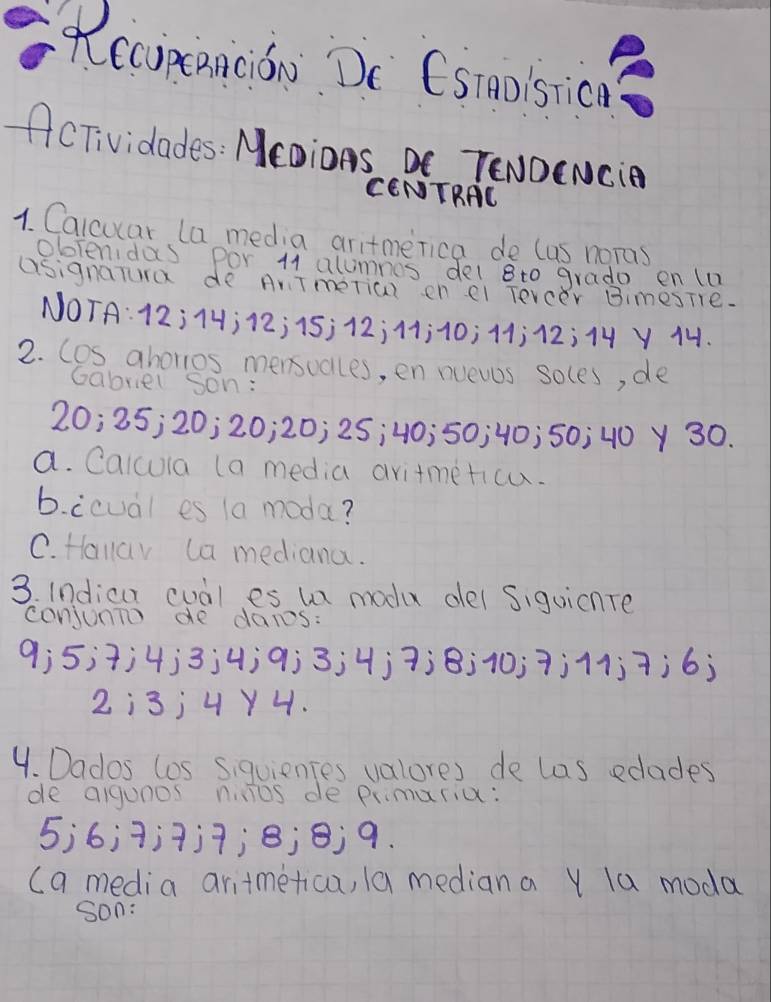 Recuperación De Estadística
Actividades: Medidas De Tendencia
Central
1. Calcular la media aritmética de las notas
obtenidas por 11 alumnos del 8to grado en la
asignatura de Aritmética en el Tercer Bimestre.
NOTA: 12; 14; 12; 15; 12; 11; 10; 11; 12; 14 y 14.
2. Los ahorros mensuales, en nuevos soles, de
Gabriel son:
20; 25; 20; 20; 20; 25; 40; 50; 40; 50; 40 y 30.
a. Calcula la media aritmética.
b. ¿cuál es la moda?
C. Hallar la mediana.
3. Indica cuál es la moda del siguiente
conjunto de datos:
9; 5; 7; 4; 3; 4; 9; 3; 4; 7; 8; 10; 7; 11; 7; 6;
2; 3; 4 y 4.
4. Dados los siguientes valores de las edades
de algunos niños de primaria:
5; 6; 7; 7; 7; 8; 8; 9.
La media aritmética, la mediana y la moda
son: